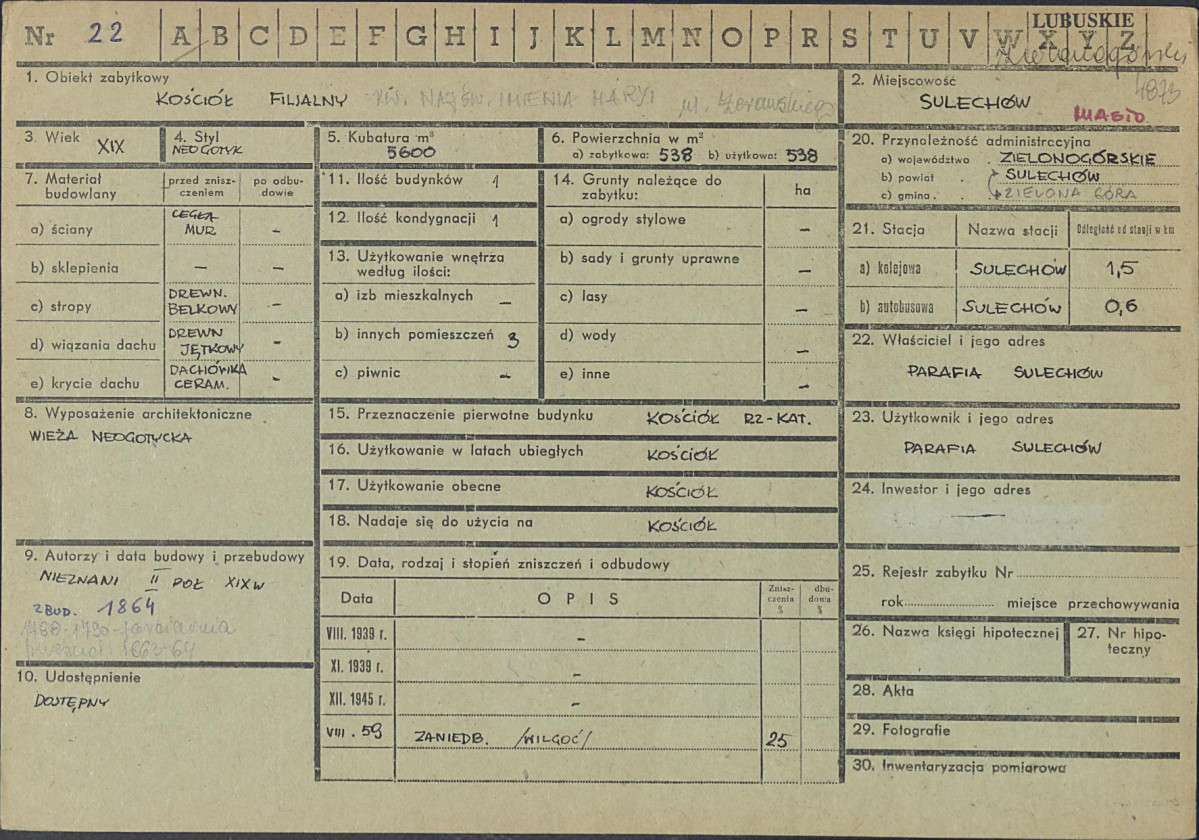 Nr 22 A B C D E F G H I J K L M N O P R S T U V W X Y Z
LUBUSKIE
1. Obiekt zabytkowy
KOŚCIÓŁ FILJALNY PW. NAJŚW. IMIENIA MARYI
2. Miejscowość
SULECHÓW
MIASTO
3. Wiek XIX
4. Styl
NEOGOTYK
5. Kubatura m³
5600
6. Powierzchnia w m²
a) zabytkowa: 538 b) użytkowa: 538
7. Materiał budowlany
przed zniszczeniem
po odbudowie
a) ściany CEGŁA MUR -
b) sklepienia - -
c) stropy DREWN. BELKOWY -
d) wiązania dachu DREWN JĘTKOWY -
e) krycie dachu DACHÓWKA CERAM. -
8. Wyposażenie architektoniczne
WIEŻA NEOGOTYCKA
9. Autorzy i data budowy i przebudowy
NIEZNANI II POŁ XIX W
ZBUD. 1864
10. Udostępnienie
DOSTĘPNY
11. Ilość budynków 1
12. Ilość kondygnacji 1
13. Użytkowanie wnętrza
według ilości:
a) izb mieszkalnych -
b) innych pomieszczeń 3
c) piwnic -
14. Grunty należące do
zabytku:
ha
a) ogrody stylowe -
b) sady i grunty uprawne -
c) lasy -
d) wody -
e) inne -
15. Przeznaczenie pierwotne budynku KOŚCIÓŁ RZ-KAT.
16. Użytkowanie w latach ubiegłych KOŚCIÓŁ
17. Użytkowanie obecne KOŚCIÓŁ
18. Nadaje się do użycia na KOŚCIÓŁ
19. Data, rodzaj i stopień zniszczeń i odbudowy
Data OPIS Zniszczenia % dbudowa %
VIII. 1939 r. -
XI. 1939 r. -
XII. 1945 r. -
VIII. 59 ZANIEDB. /WILGOĆ/ 25
20. Przynależność administracyjna
a) województwo . ZIELONOGÓRSKIE
b) powiat . SULECHÓW
c) gmina . . ZIELONA GÓRA
21. Stacja Nazwa stacji Odległość od stacji w km
a) kolejowa SULECHÓW 1,5
b) autobusowa SULECHÓW 0,6
22. Właściciel i jego adres
PARAFIA SULECHÓW
23. Użytkownik i jego adres
PARAFIA SULECHÓW
24. Inwestor i jego adres
—
25. Rejestr zabytku Nr
rok miejsce przechowywania
26. Nazwa księgi hipotecznej
27. Nr hipoteczny
28. Akta
29. Fotografie
30. Inwentaryzacja pomiarowa